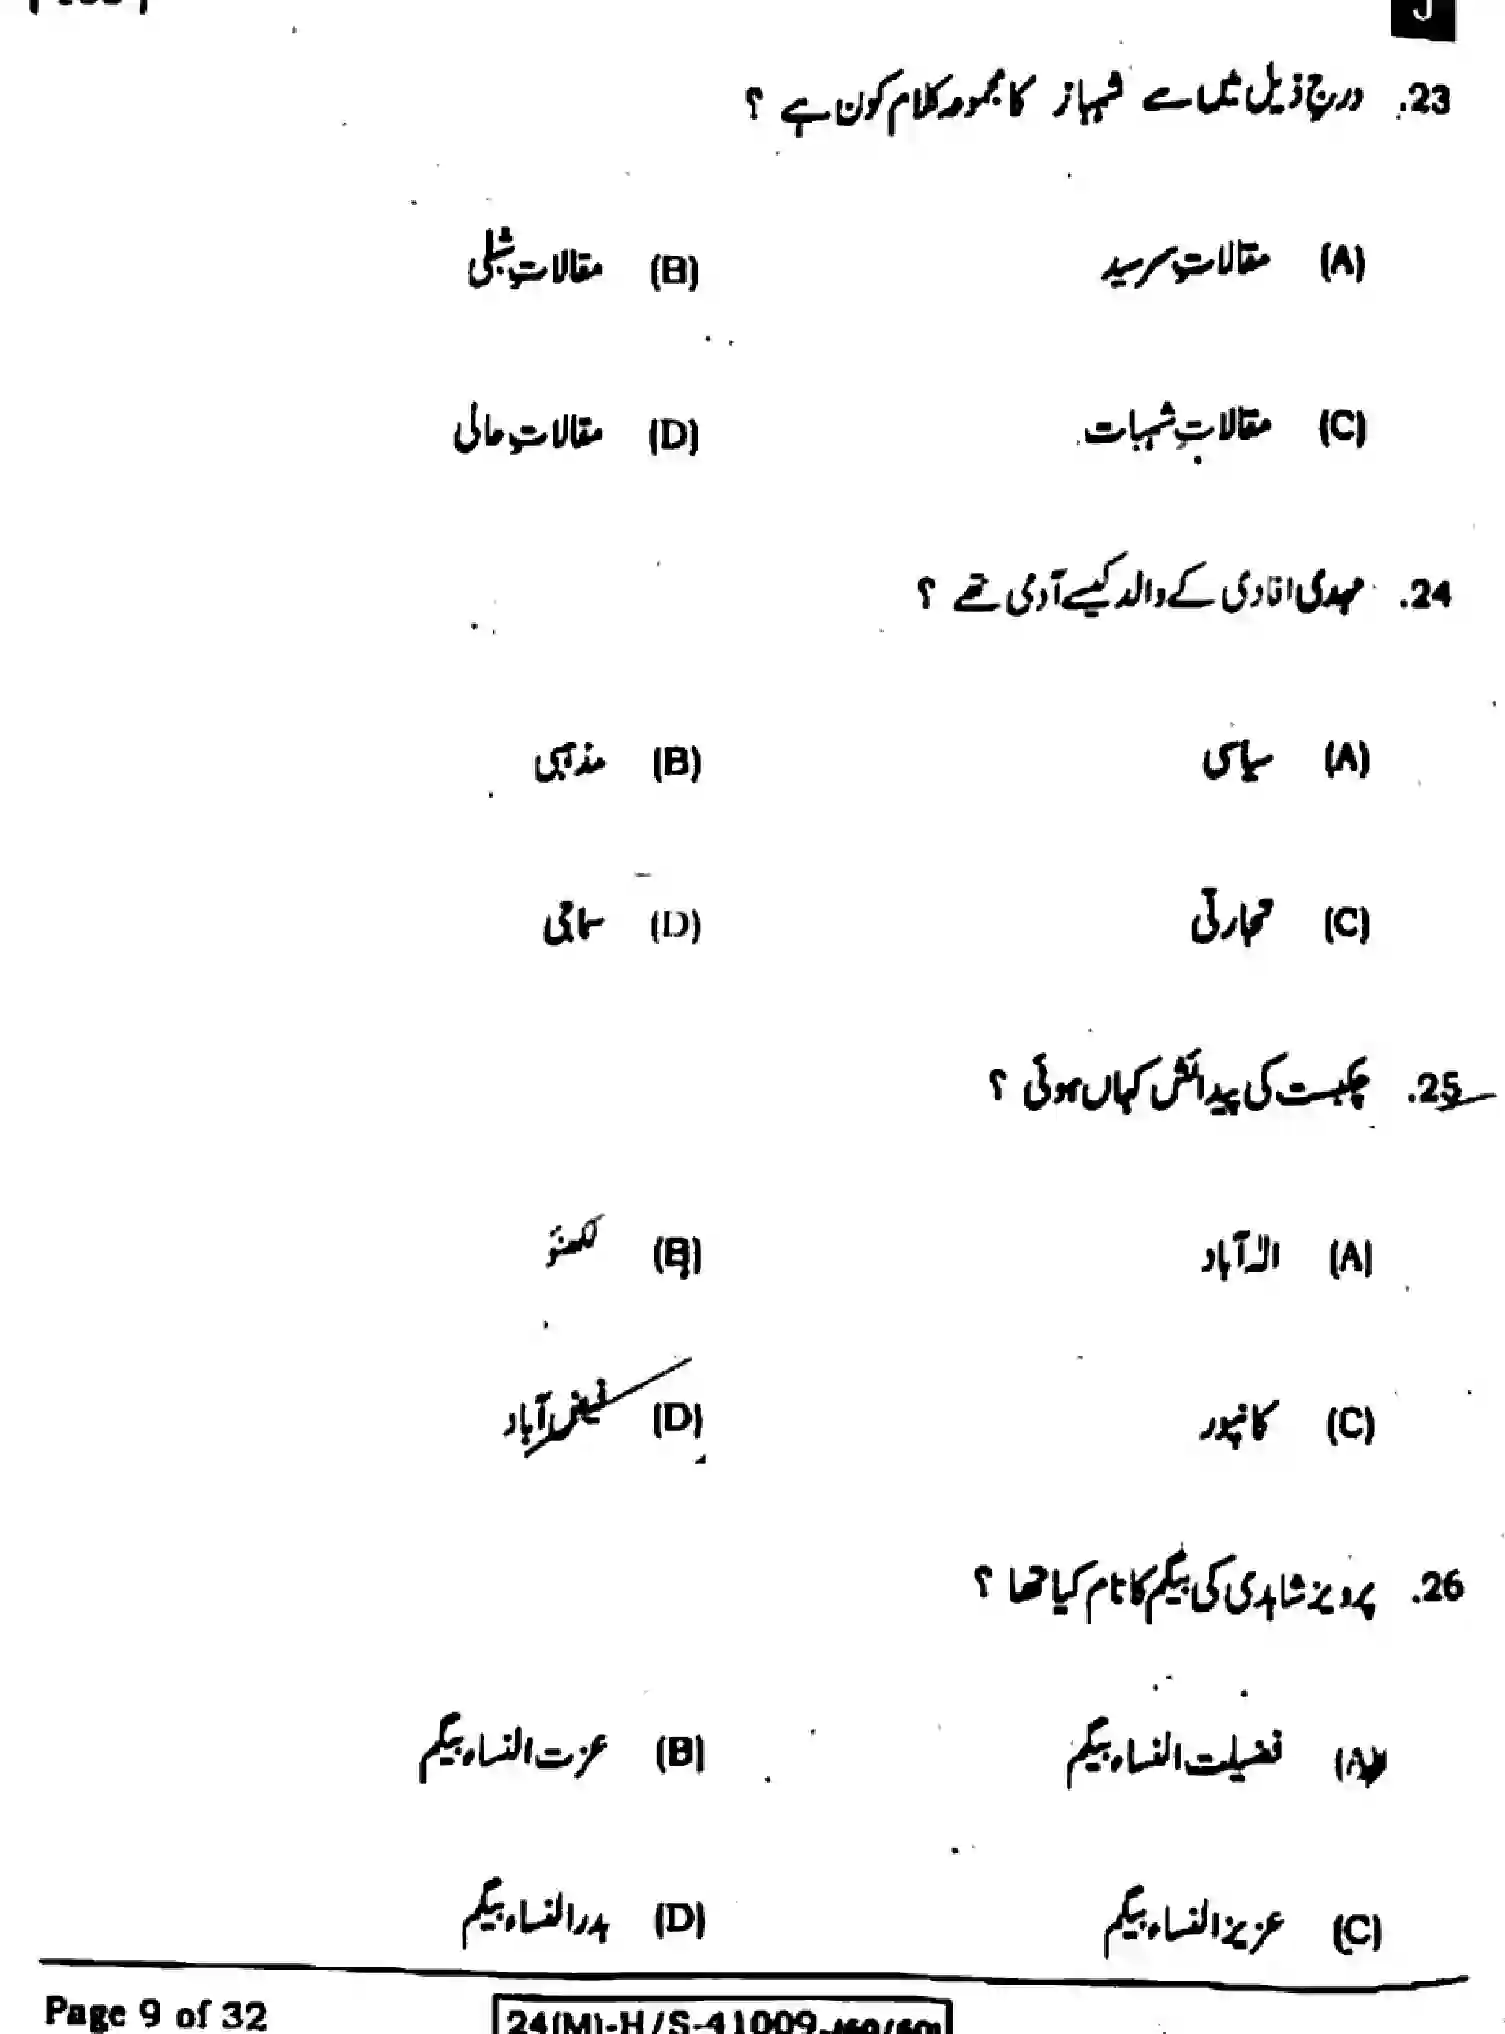 J
23. درج ذیل میں سے شہباز کا مجموعہ کلام کون ہے ؟
(A) مقالاتِ سرسید (B) مقالاتِ شبلی
(C) مقالاتِ شہبات (D) مقالاتِ حالی
24. مہدی افادی کے والد کیسے آدمی تھے ؟
(A) سیاسی (B) مذہبی
(C) تجارتی (D) سماجی
25. چکبست کی پیدائش کہاں ہوئی ؟
(A) الہٰ آباد (B) لکھنؤ
(C) کانپور (D) فیض آباد
26. پرویز شاہدی کی بیگم کا نام کیا تھا ؟
(A) فضیلت النساء بیگم (B) عزت النساء بیگم
(C) عزیز النساء بیگم (D) بدر النساء بیگم
Page 9 of 32 24(M)-H/S-41009